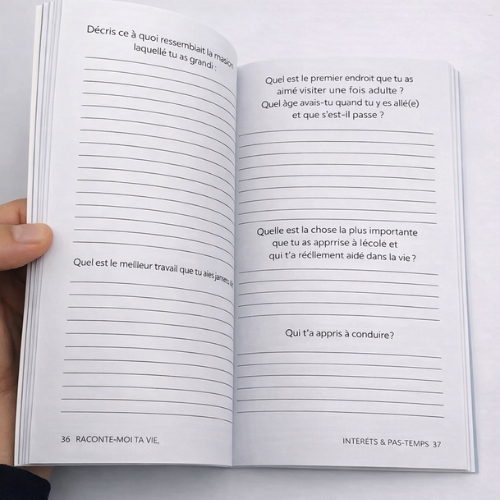 Décris ce à quoi ressemblait la masion
laquellé tu as grandi :
Quel est le meilleur travail que tu aies jamais
36 RACONTE-MOI TA VIE,
Quel est le premier endroit que tu as
aimé visiter une fois adulte ?
Quel âge avais-tu quand tu y es allé(e)
et que s'est-il passe ?
Quelle est la chose la plus importante
que tu as apprrise à lécole et
qui t'a réellement aidé dans la vie ?
Qui t'a appris à conduire?
INTERÉTS & PAS-TEMPS 37